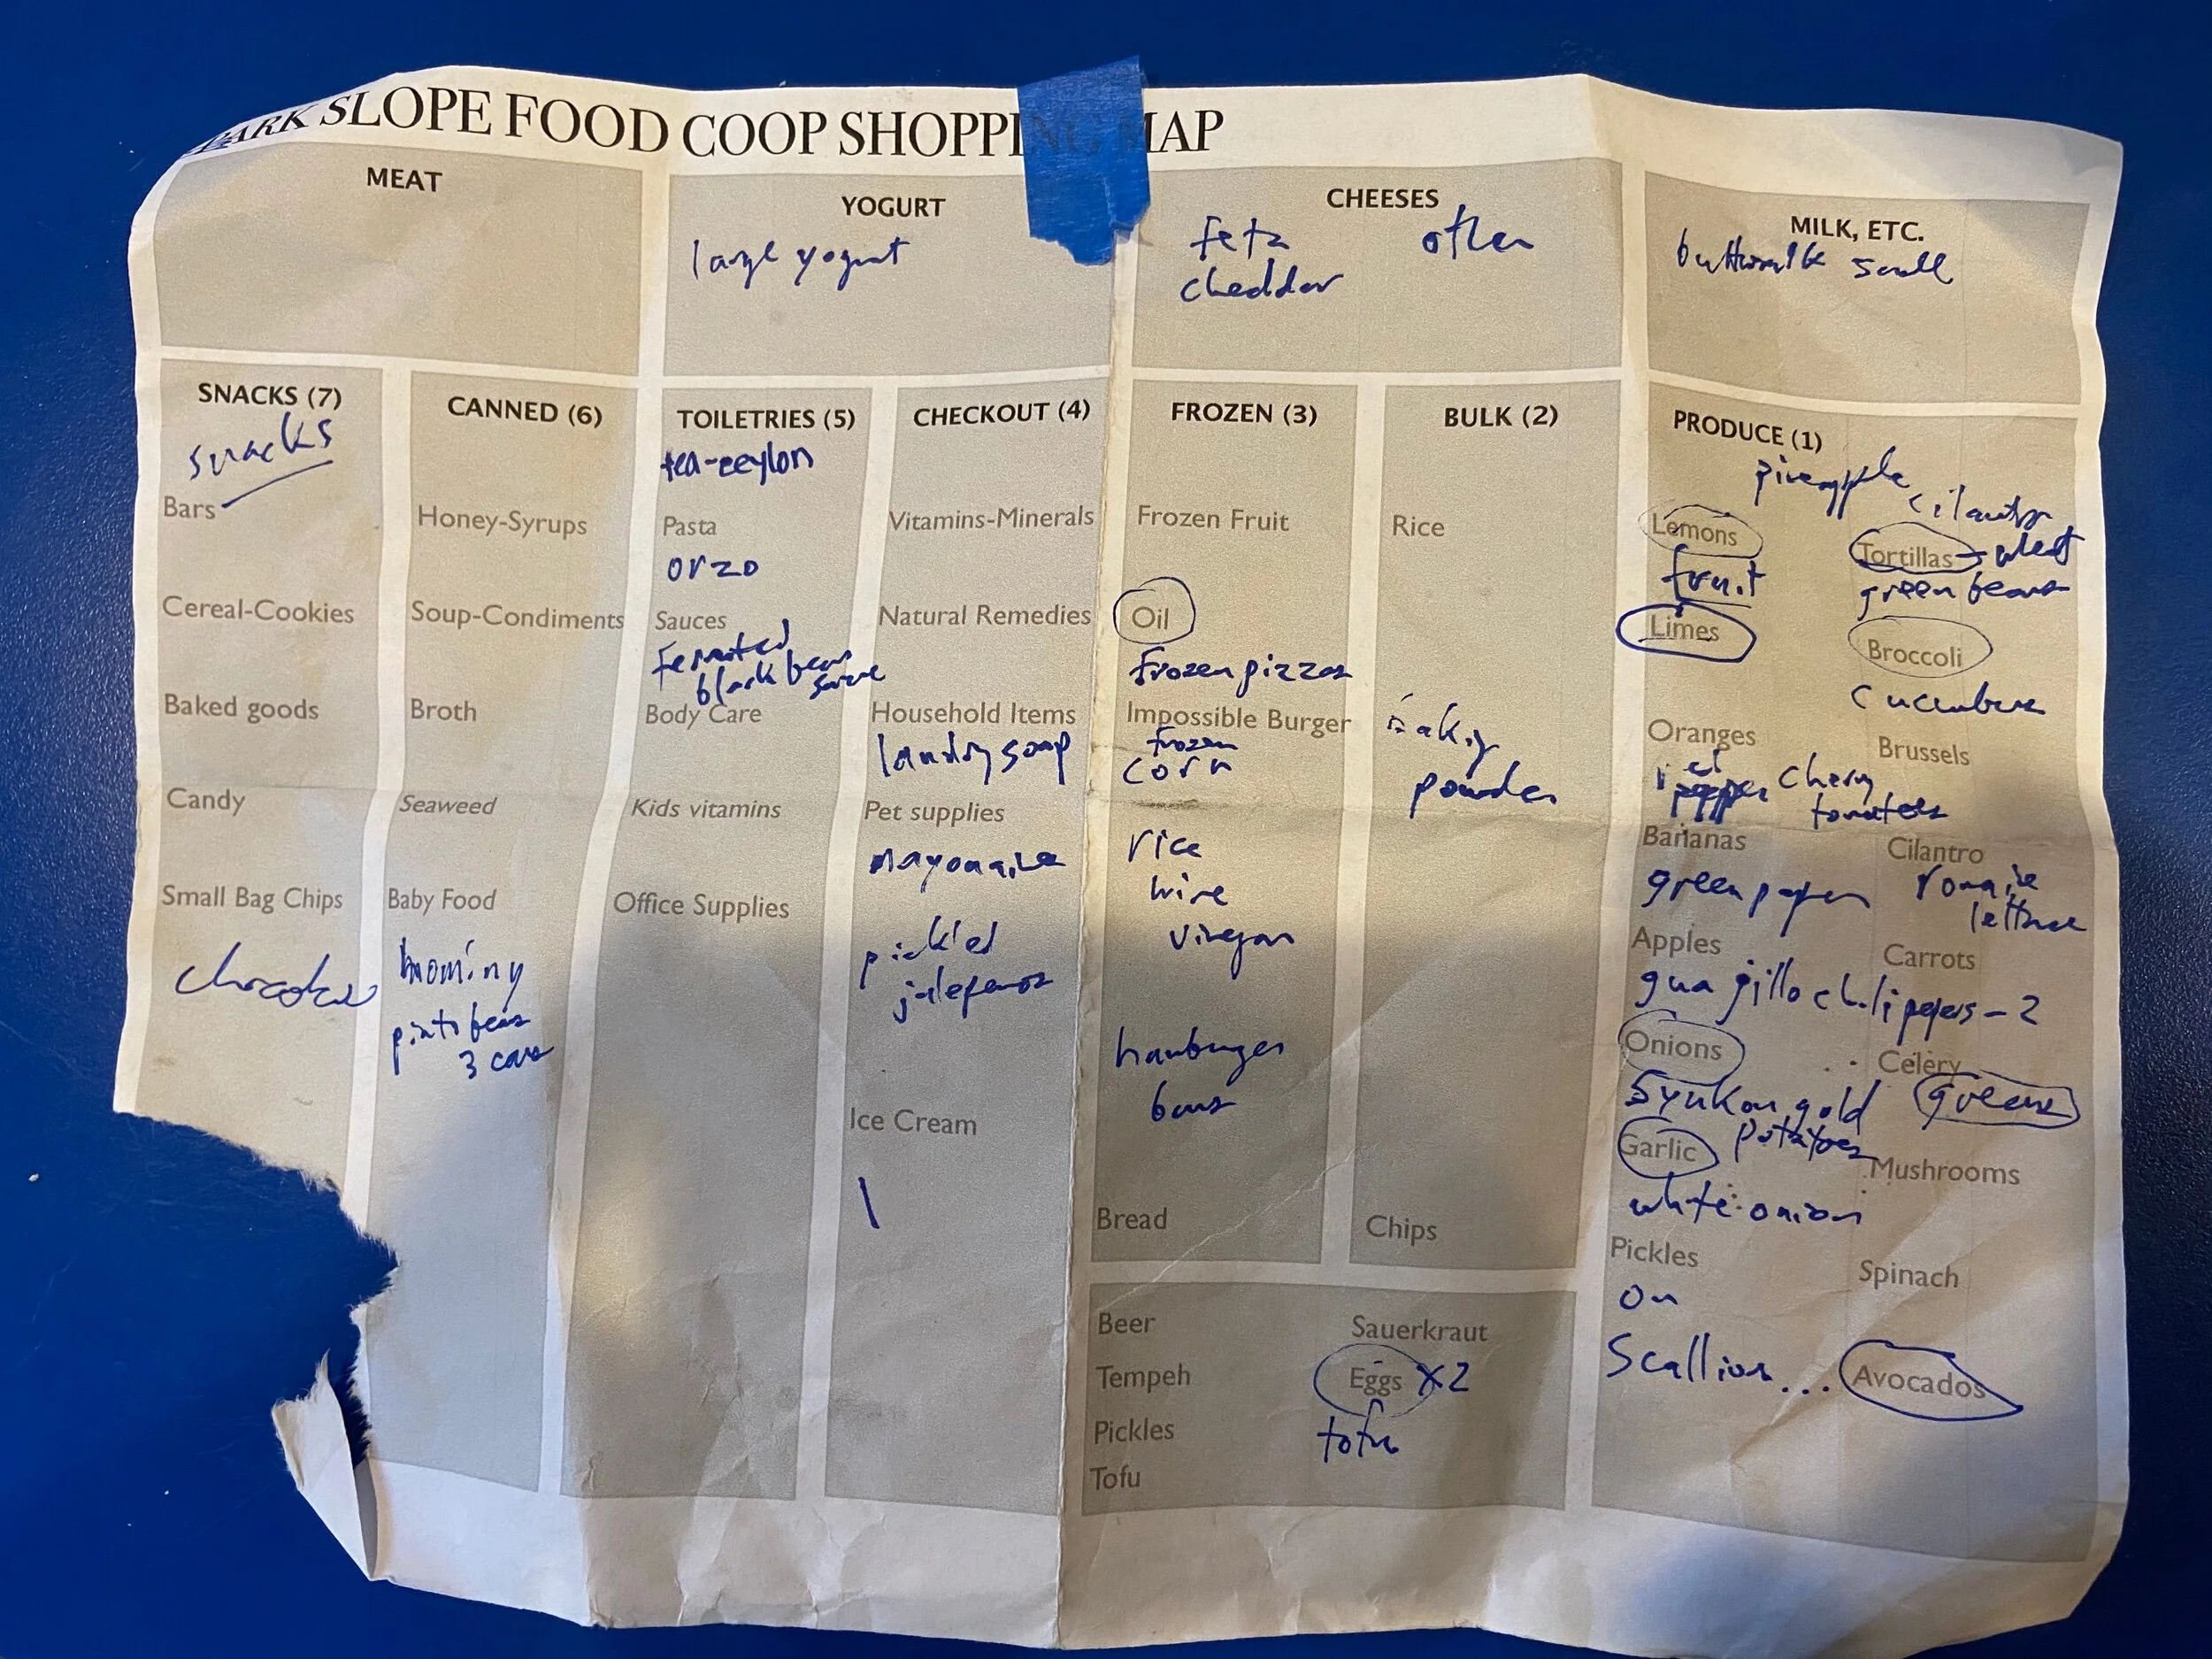 PARK SLOPE FOOD COOP SHOPPING MAP
MEAT
YOGURT
large yogurt
CHEESES
feta other
cheddar
MILK, ETC.
buttermilk small
SNACKS (7)
snacks
Bars
Cereal-Cookies
Baked goods
Candy
Small Bag Chips
CANNED (6)
Honey-Syrups
Soup-Condiments
Broth
Seaweed
Baby Food
hominy
pinto beans
3 cans
TOILETRIES (5)
tea-ceylon
Pasta
orzo
Sauces
black bean
sauce
Body Care
Kids vitamins
Office Supplies
CHECKOUT (4)
Vitamins-Minerals
Natural Remedies
Household Items
soap
Pet supplies
pickled
Ice Cream
FROZEN (3)
Frozen Fruit
Oil
frozen pizzas
Impossible Burger
frozen
corn
rice
wine
vinegar
hamburger
buns
Bread
BULK (2)
Rice
baking
powder
Chips
Beer
Tempeh
Pickles
Tofu
Sauerkraut
Eggs x2
tofu
PRODUCE (1)
pineapple
cilantro
Lemons
Tortillas - wheat
fruit
green beans
Limes
Broccoli
cucumbers
Oranges
Brussels
red
pepper cherry
tomatoes
Bananas
Cilantro
green pepper
romaine
lettuce
Apples
Carrots
guajillo chili pepers - 2
Onions
Celery
5 yukon gold greens
potatoes
Garlic
Mushrooms
white onion
Pickles
Spinach
on
Scallion... Avocados